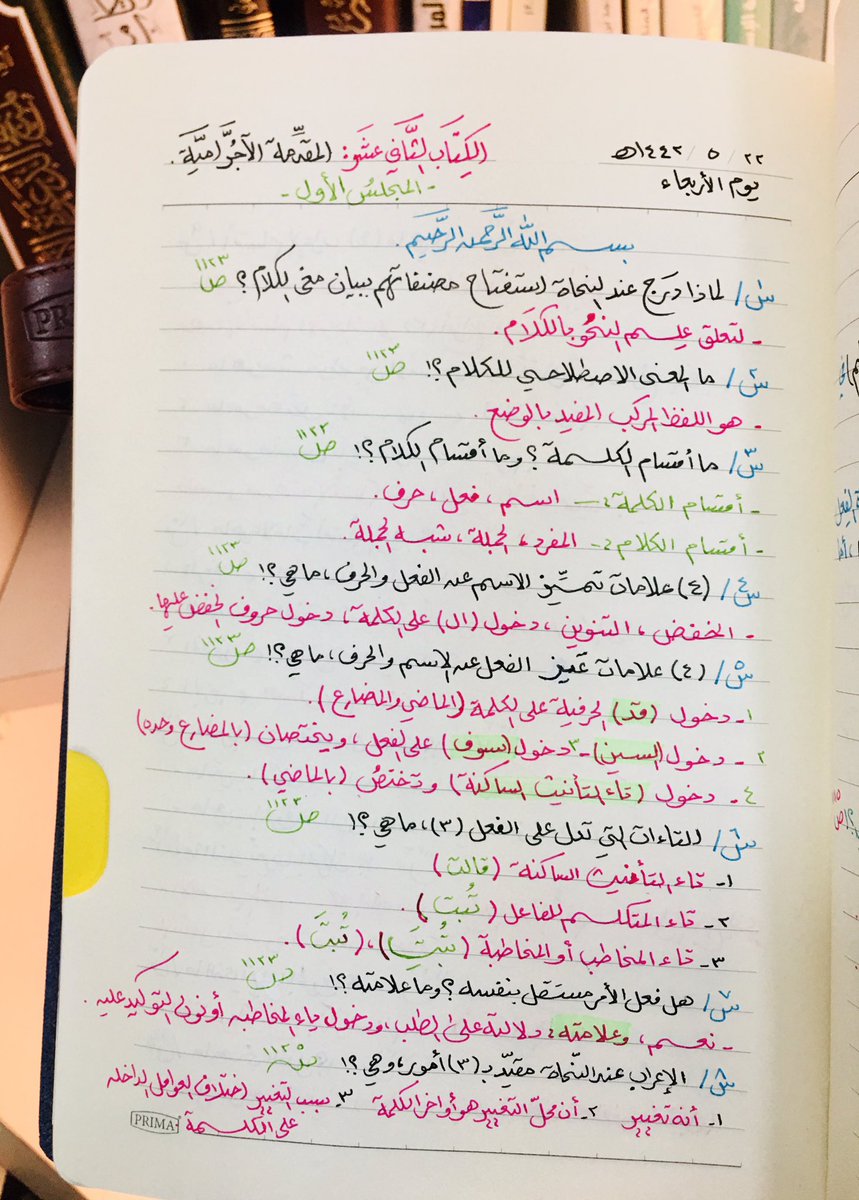 ٢٢ / ٥ / ١٤٤٢هـ
يوم الأربعاء
الكِتَاب الثَّاني عشر: المقدِّمة الآجُرَّاميَّة.
- المجلسُ الأول -
بسم اللَّه الرَّحمن الرَّحيم.
س١/ لماذا دَرَج عند النحاة استفتاح مصنفاتهم ببيان معنى الكلام؟ ص١١٢٣
- لتعلق علم النحو بالكَلَام.
س٢/ ما المعنى الاصطلاحي للكلام؟! ص١١٢٣
- هو اللفظ المركب المفيد بالوضع.
س٣/ ما أقسام الكلمة؟ وما أقسام الكلام؟! ص١١٢٣
- أقسام الكلمة :- اسم، فعل، حرف.
- أقسام الكلام :- المفرد، الجملة، شبه الجملة.
س٤/ (٤) علامات تميِّز الاسم عن الفعل والحرف، ما هي؟! ص١١٢٣
- الخفض، التنوين، دخول (ال) على الكلمة، دخول حروف الخفض عليها.
س٥/ (٤) علامات تميز الفعل عن الاسم والحرف، ما هي؟! ص١١٢٣
١- دخول (قد) الحرفية على الكلمة (الماضي والمضارع).
٢- دخول (السين) ٣- دخول (سوف) على الفعل، ويختصان (بالمضارع وحده)
٤- دخول (تاء التأنيث الساكنة) وتختصُ (بالماضي).
س٦/ التاءات التي تدل على الفعل (٣)، ما هي؟! ص١١٢٣
١- تاء التأنيث الساكنة (قالت)
٢- تاء المتكلم للفاعل (تُبتُ).
٣- تاء المخاطب أو المخاطبة (تُبتِ)، (تُبتَ).
س٧/ هل فعل الأمر مستقل بنفسه؟ وما علامته؟! ص١١٢٣
- نعم، وعلامته: دلالته على الطلب، ودخول ياء المخاطبه أو نون التوكيد عليه.
س٨/ الإعراب عند النّحاة مقيّد بـ (٣) أمور، وهي؟! ص١١٢٥
١- أنه تغيير ٢- أن محلّ التغيير هو أواخر الكلمة ٣- سبب التغيير اختلاف العوامل الداخله على الكلمة
PRIMA